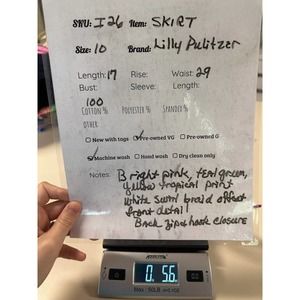 SKU: I26 Item: SKIRT
Size: 10 Brand: Lilly Pulitzer
Length: 17 Rise: Waist: 29
Bust: Sleeve: Length:
100
COTTON % POLYESTER % SPANDEX %
OTHER
New with tags Pre-owned VG Pre-owned G
Machine wash Hand wash Dry clean only
Notes: Bright pink, teal green,
yellow tropical print
White swirl braid offset
front detail
Back zipper hook closure
0 5.6